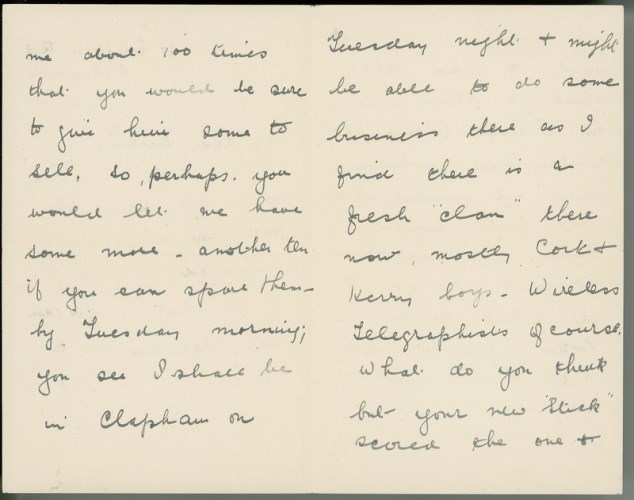 me about 100 times
that you would be sure
to give him some to
sell, so, perhaps. you
would let me have
some more - another ten
if you can spare them -
by Tuesday morning;
you see I shall be
in Clapham on
Tuesday night + might
be able to do some
business there as I
find there is a
fresh "clan" there
now, mostly Cork +
Kerry boys - Wireless
Telegraphists of course.
What do you think
but your new "Stick"
scored the one +